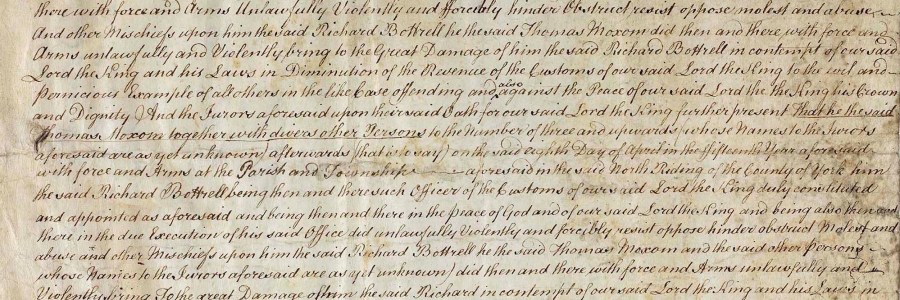 there with force and Arms Unlawfully Violently and forcibly hinder Obstruct resist oppose molest and abuse
And other Mischiefs upon him the said Richard Bottrell he the said Thomas Moxom did then and there with force and
Arms unlawfully and Violently bring to the Great Damage of him the said Richard Bottrell in contempt of our said
Lord the King and his Laws in Diminution of the Revenue of the Customs of our said Lord the King to the evil and
Pernicious Example of all others in the like Case offending and also against the Peace of our said Lord the King his Crown
and Dignity And the Jurors aforesaid upon their said Oath for our said Lord the King further present That he the said
Thomas Moxom together with divers other Persons to the Number of three and upwards (whose Names to the Jurors
aforesaid are as yet unknown) afterwards (that is to say) on the said eighth Day of April in the fifteenth Year aforesaid
with force and Arms at the Parish and Township aforesaid in the said North Riding of the County of York him
the said Richard Bottrell being then and there such Officer of the Customs of our said Lord the King duly constituted
and appointed as aforesaid and being then and there in the peace of God and of our said Lord the King and being also then and
there in the due Execution of his said Office did unlawfully Violently and forcibly resist oppose hinder obstruct Molest and
abuse and other Mischiefs upon him the said Richard Bottrell he the said Thomas Moxom and the said other Persons
whose Names to the Jurors aforesaid are as yet unknown) did then and there with force and Arms unlawfully and
Violently bring To the great Damage of him the said Richard in contempt of our said Lord the King and his Laws in